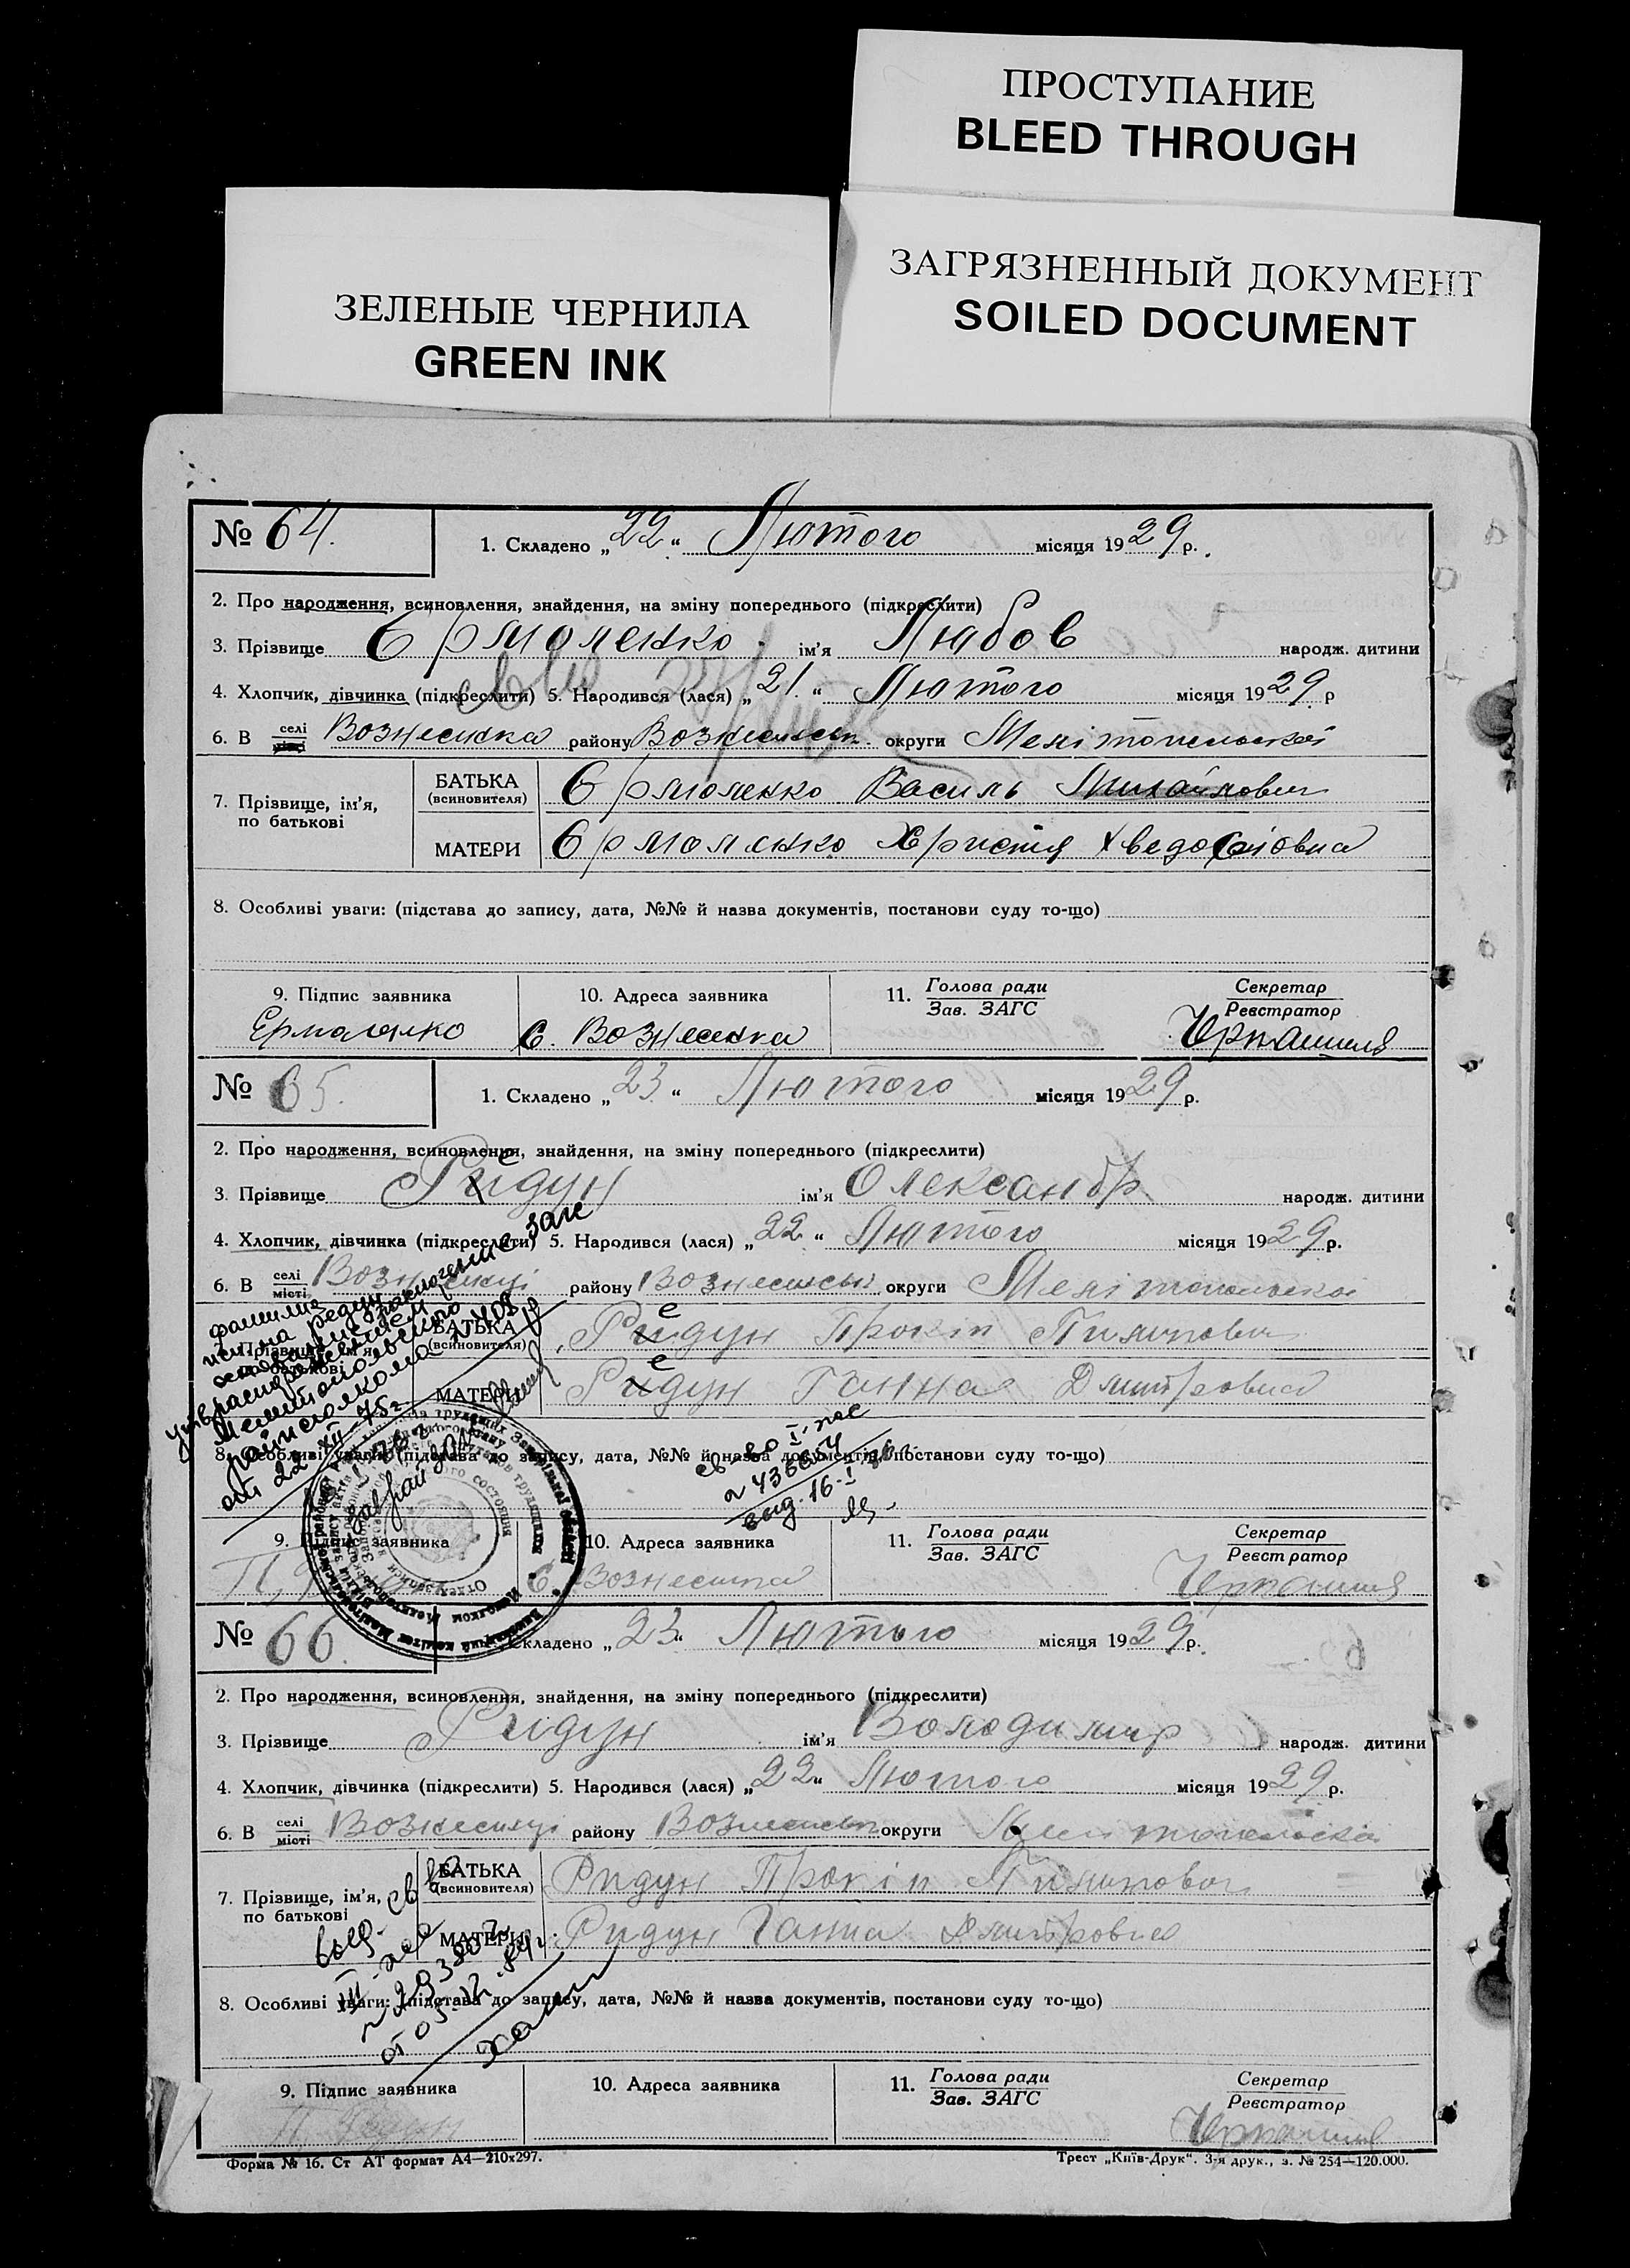 ПРОСТУПАНИЕ
BLEED THROUGH
ЗЕЛЕНЫЕ ЧЕРНИЛА
GREEN INK
ЗАГРЯЗНЕННЫЙ ДОКУМЕНТ
SOILED DOCUMENT
№ 64. 1. Складено „22“ Лютого місяця 1929 р.
2. Про народження, всиновлення, знайдення, на зміну попереднього (підкреслити)
3. Прізвище Єрмоленко ім'я Любов народж. дитини
4. Хлопчик, дівчинка (підкреслити) 5. Народився (лася) „21“ Лютого місяця 1929 р
6. В селі місті Вознесенка району Вознесенськ округи Мелітопельської
7. Прізвище, ім'я, по батькові
БАТЬКА (всиновителя) Єрмоленко Василь Михайлович
МАТЕРИ Єрмоленко Христя
8. Особливі уваги: (підстава до запису, дата, №№ й назва документів, постанови суду то-що)
9. Підпис заявника 10. Адреса заявника 11. Голова ради Зав. ЗАГС Секретар Реєстратор
С. Вознесенка
№ 65. 1. Складено „23“ Лютого місяця 1929 р.
2. Про народження, всиновлення, знайдення, на зміну попереднього (підкреслити)
3. Прізвище Ридун е ім'я Олександр народж. дитини
4. Хлопчик, дівчинка (підкреслити) 5. Народився (лася) „22“ Лютого місяця 1929 р.
6. В селі місті Вознесенці району Вознесенськ округи Мелітопольської
7. Прізвище, ім'я, по батькові
БАТЬКА (всиновителя) Ридун е Прокіп Пилипович
МАТЕРИ Ридун е Ганна Дмитровна
фамилия
испр. на Редун
основание заключение загс
утв. распоряжением
Мелитопольского
райисполкома
от 22-XII-75г
св-во I-
№ 436654
выд. 16-I
8. Особливі уваги: (підстава до запису, дата, №№ й назва документів, постанови суду то-що)
9. Підпис заявника 10. Адреса заявника 11. Голова ради Зав. ЗАГС Секретар Реєстратор
С. Вознесенка
№ 66. 1. Складено „23“ Лютого місяця 1929 р.
2. Про народження, всиновлення, знайдення, на зміну попереднього (підкреслити)
3. Прізвище Ридун ім'я Володимир народж. дитини
4. Хлопчик, дівчинка (підкреслити) 5. Народився (лася) „22“ Лютого місяця 1929 р.
6. В селі місті Вознесенці району Вознесенськ округи Мелітопольської
7. Прізвище, ім'я, по батькові
БАТЬКА (всиновителя) Ридун Прокіп Пилипович
МАТЕРИ Ридун Ганна Дмитровна
выд. св-во
8. Особливі уваги: (підстава до запису, дата, №№ й назва документів, постанови суду то-що)
9. Підпис заявника 10. Адреса заявника 11. Голова ради Зав. ЗАГС Секретар Реєстратор
П. Редун
Форма № 16. Ст АТ формат А4—210х297. Трест „Київ-Друк“. 3-я друк., з. № 254—120.000.